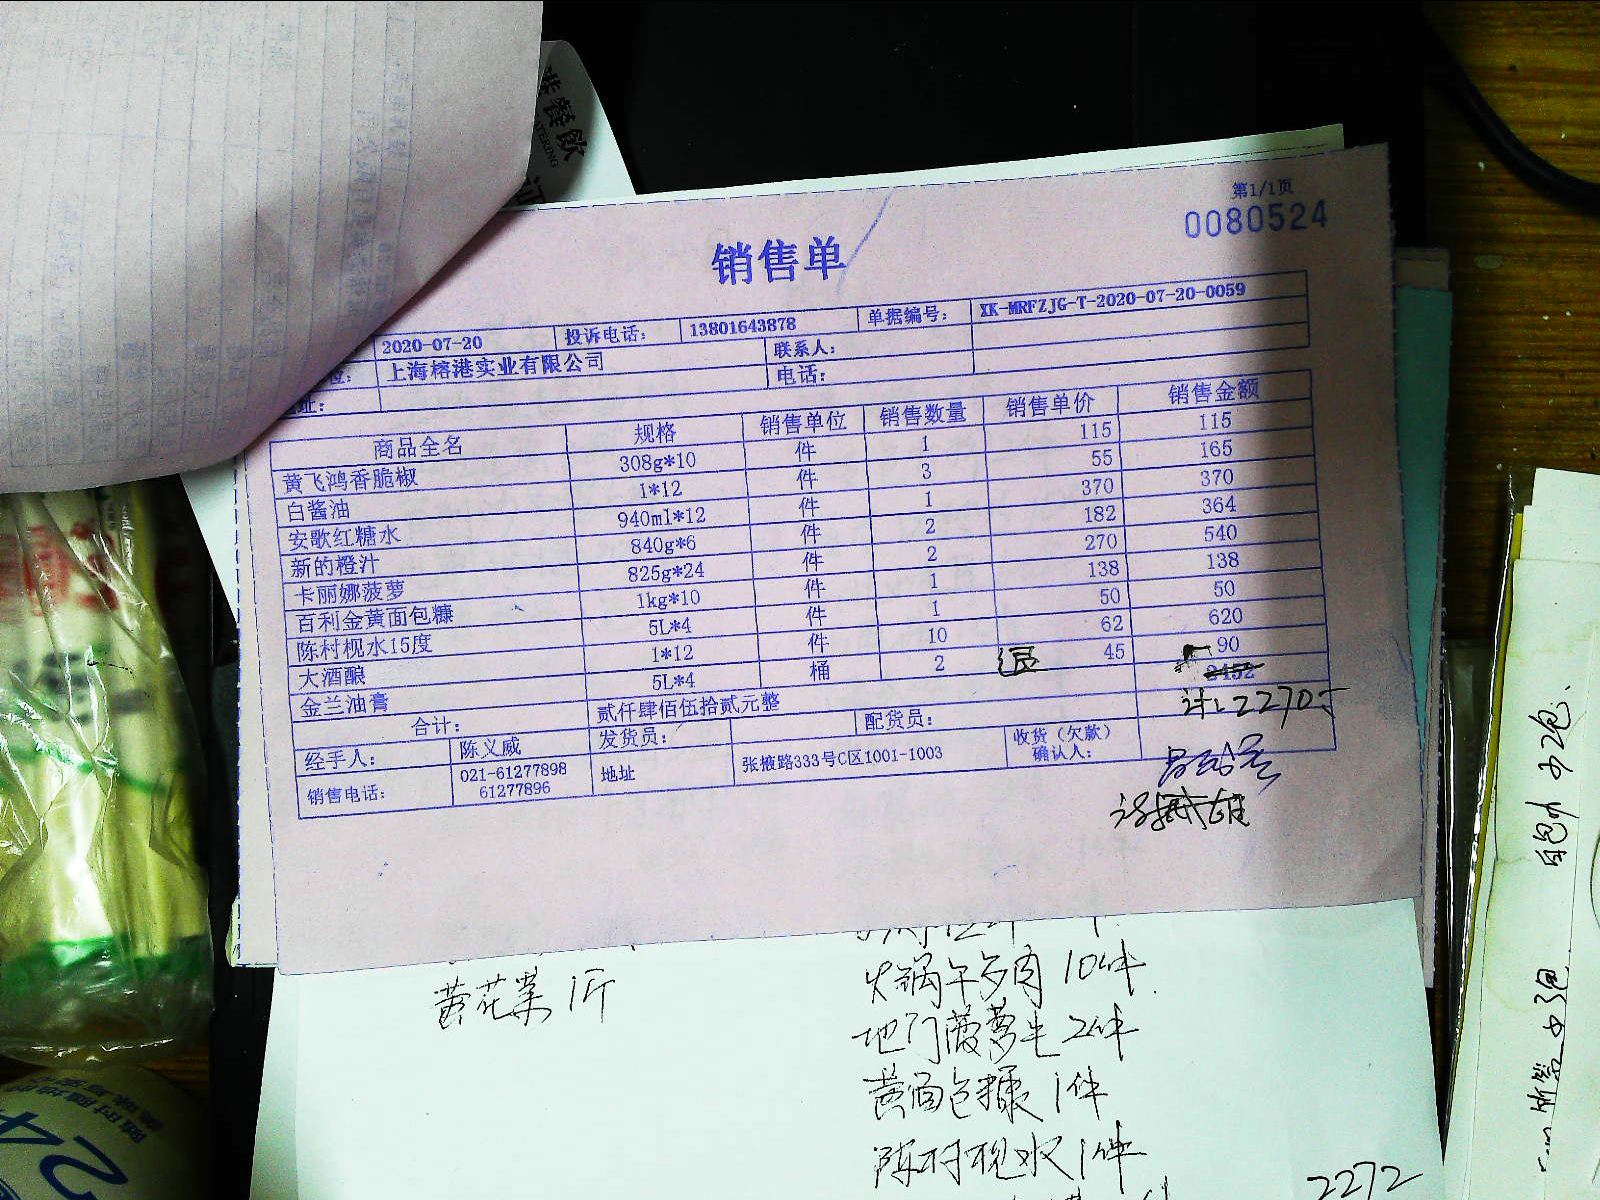 港餐飲
第1/1页
0080524
销售单
2020-07-20 投诉电话： 13801643878 单据编号： XK-MRFZJG-T-2020-07-20-0059
位： 上海榕港实业有限公司 联系人：
址： 电话：
商品全名 规格 销售单位 销售数量 销售单价 销售金额
黄飞鸿香脆椒 308g*10 件 1 115 115
白酱油 1*12 件 3 55 165
安歌红糖水 940ml*12 件 1 370 370
新的橙汁 840g*6 件 2 182 364
卡丽娜菠萝 825g*24 件 2 270 540
百利金黄面包糠 1kg*10 件 1 138 138
陈村枧水15度 5L*4 件 1 50 50
大酒酿 1*12 件 10 62 620
金兰油膏 5L*4 桶 2 退 45 90
合计： 贰仟肆佰伍拾贰元整 2452
计：2270
经手人： 陈义威 发货员： 配货员： 收货（欠款）
确认人：
销售电话： 021-61277898
61277896 地址 张掖路333号C区1001-1003
黄花菜 1斤
火锅午多肉 10件
地门菠萝 2件
黄面包糠 1件
陈村枧水 1件
2272
24